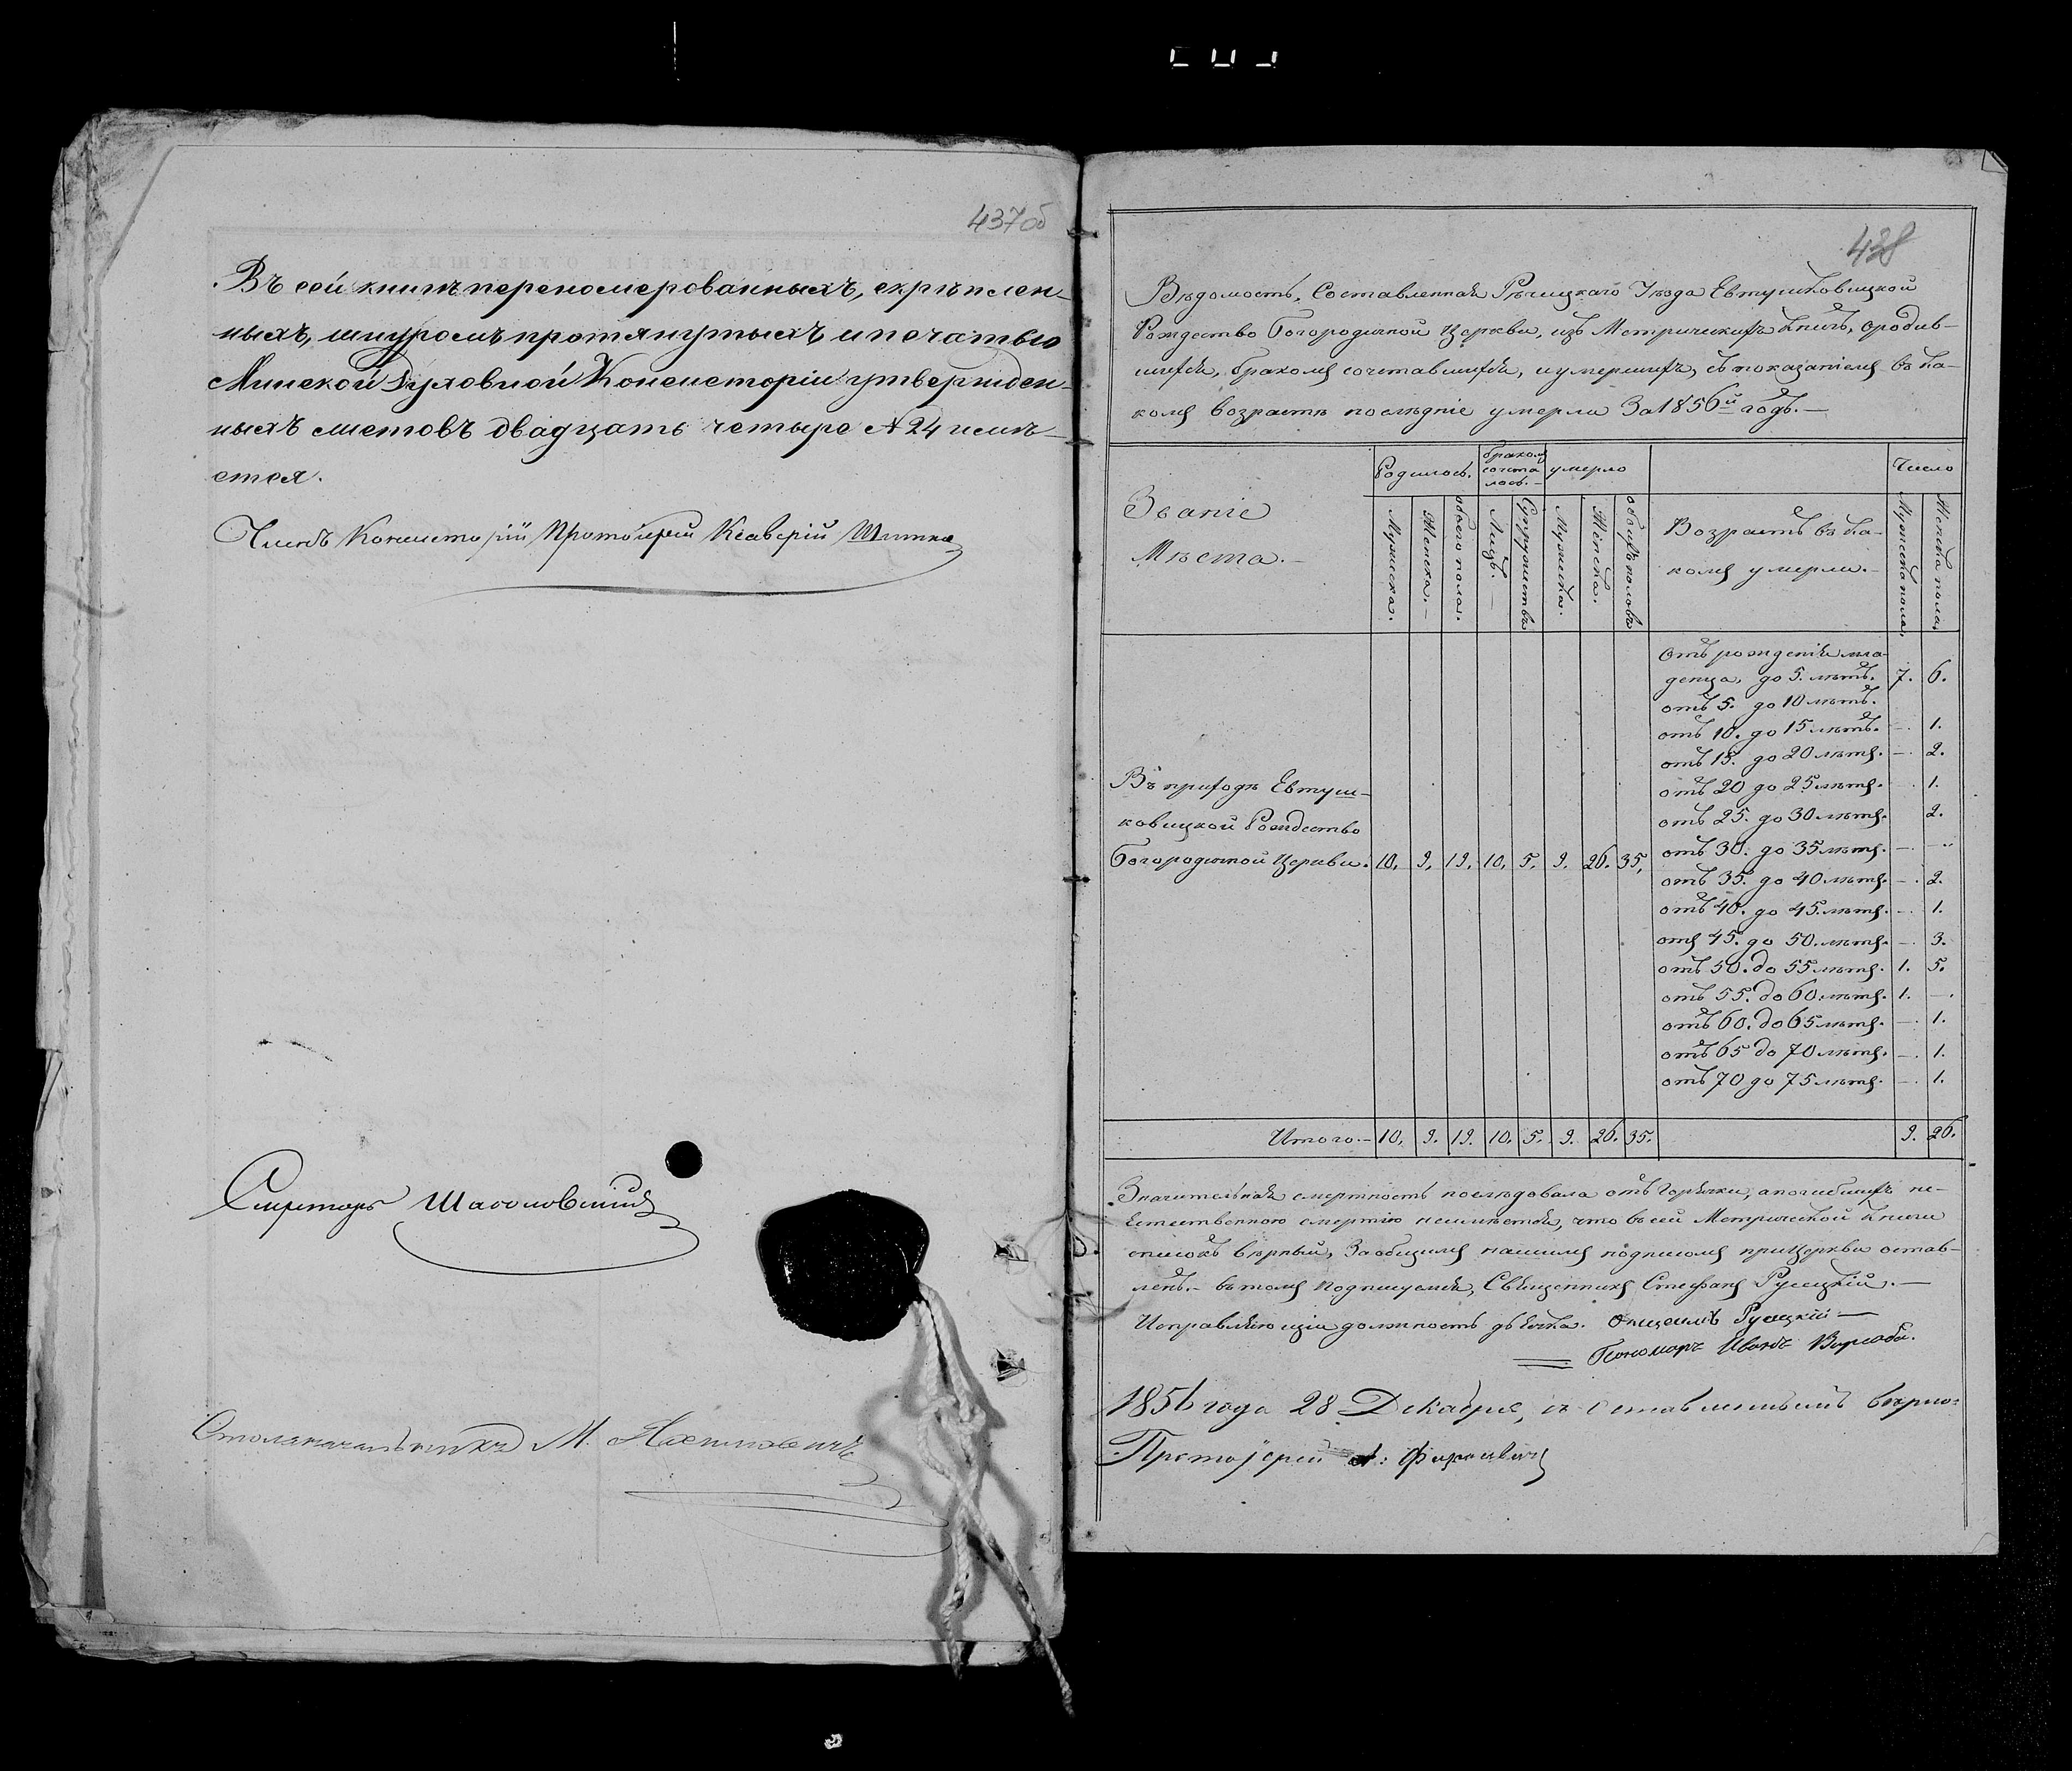 437об
Въ сей книгѣ переномерованныхъ, скрѣплен-
ныхъ, шнуромъ протянутыхъ и печатью
Минской Духовной Консисторіи утвержден-
ныхъ листовъ двадцать четыре № 24 имѣ-
ется.
Членъ Консисторіи Протоіерей Ксаверій
Секретарь
Столоначальникъ М.
438
Вѣдомость, Составленная Рѣчицкаго Уѣзда Евтушковицкой
Рождество Богородичной Церкви, изъ Метрическихъ Книгъ, о родив-
шихся, бракомъ сочетавшихся, и умершихъ, съ показаніемъ въ ка-
комъ возрастѣ послѣдніе умерли За 1856й годъ.
Званіе
Мѣста.
Родилось.
бракомъ
сочета
лось.
умерло
Число
Мужеска.
Женска.
обоего пола.
Лицъ.
Супружествъ
Мужеска.
Женска.
обоихъ половъ
Возрастъ въ ка-
комъ умерли.
Мужеска пола.
Женска пола.
Отъ рожденія мла-
денца, до 5. лѣтъ. 7. 6.
отъ 5. до 10 лѣтъ.
отъ 10. до 15 лѣтъ. — 1.
отъ 15. до 20 лѣтъ. — 2.
отъ 20 до 25 лѣтъ. 1.
отъ 25. до 30 лѣтъ. 2.
отъ 30. до 35 лѣтъ. —
отъ 35. до 40 лѣтъ. — 2.
отъ 40. до 45. лѣтъ. — 1.
отъ 45. до 50. лѣтъ. — 3.
отъ 50. до 55 лѣтъ. 1. 5.
отъ 55. до 60. лѣтъ. 1. —
отъ 60. до 65 лѣтъ. — 1.
отъ 65 до 70 лѣтъ. — 1.
отъ 70 до 75 лѣтъ. — 1.
Въ приходѣ Евтуш-
ковицкой Рождество
Богородичной Церкви. 10. 9. 19. 10. 5. 9. 26. 35.
Итого. 10. 9. 19. 10. 5. 9. 26. 35. 9. 26.
Значительная смертность послѣдовала отъ Горячки, а погибшихъ не-
Естественною смертію неимѣется, что въ сей Метрической Книги
списокъ вѣрный, За общимъ нашимъ подписомъ при Церкви остав-
ленъ. въ томъ подписуемся, Священникъ Стефанъ Русецкій.
Исправляющій должность дьячка. Русецкій
Пономарь Иванъ
1856 года 28 Декабря, вѣрно:
Протоіерей